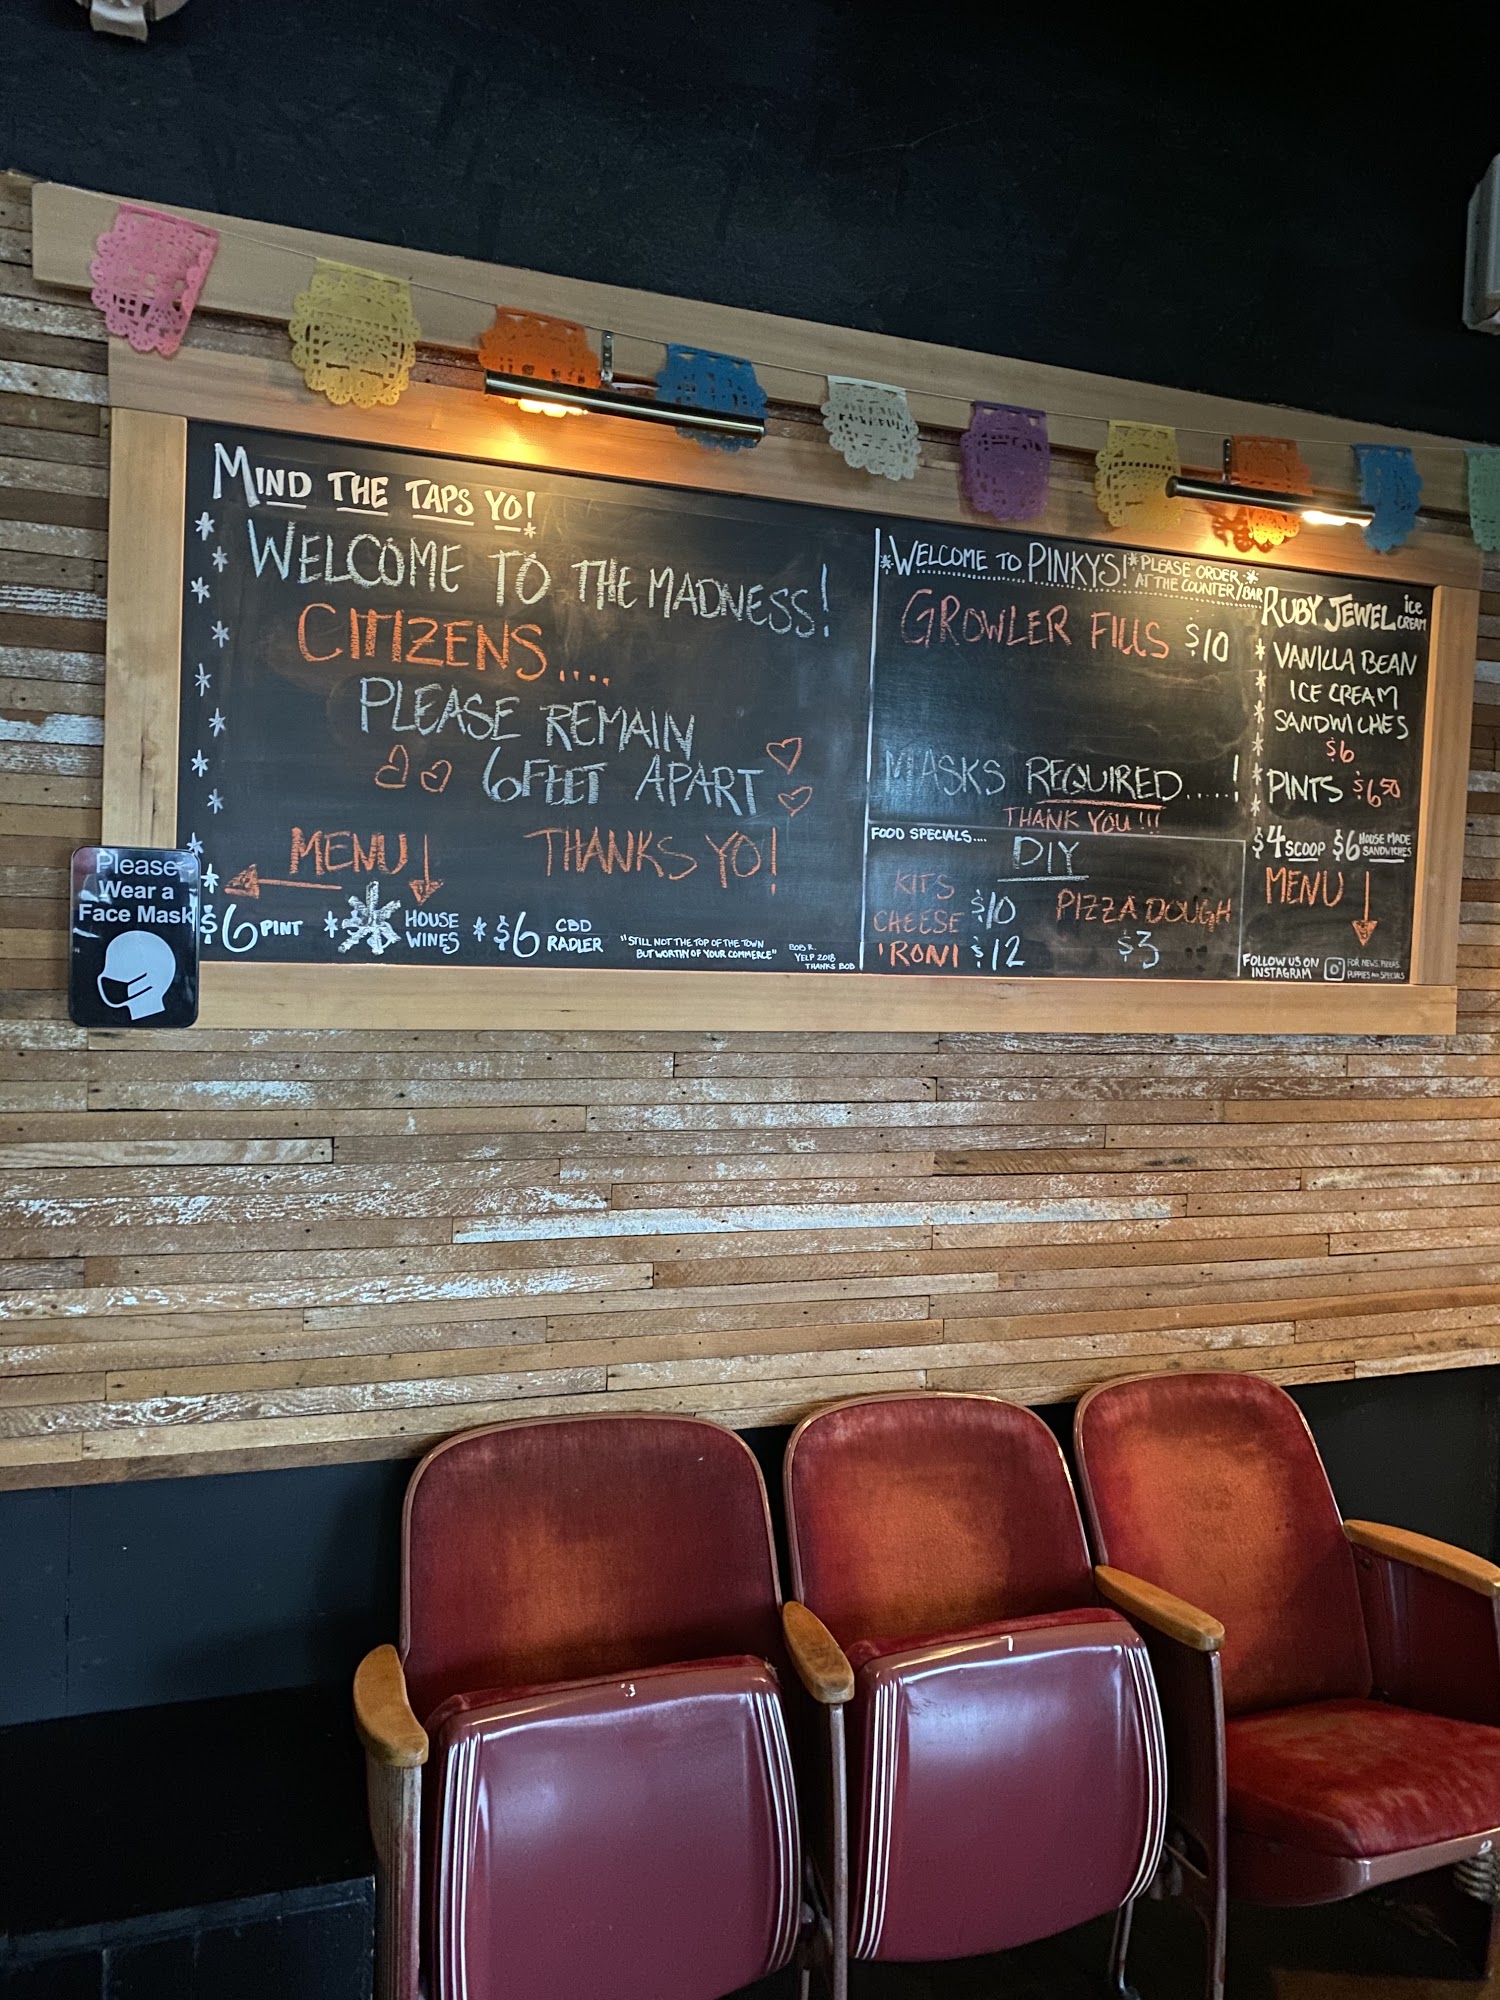 MIND THE TAPS YO!
WELCOME TO THE MADNESS!
CITIZENS....
PLEASE REMAIN
6 FEET APART
MENU
THANKS YO!
$6 PINT
HOUSE
WINES
$6 CBD
RADLER
"STILL NOT THE TOP OF THE TOWN
BUT WORTHY OF YOUR COMMERCE"
BOB R.
YELP 2018
THANKS BOB
Please
Wear a
Face Mask
WELCOME TO PINKY'S!
PLEASE ORDER
AT THE COUNTER/BAR
GROWLER FILLS $10
MASKS REQUIRED.....!
THANK YOU!!!
FOOD SPECIALS....
DIY
KITS
CHEESE $10
'RONI $12
PIZZA DOUGH
$3
RUBY JEWEL ICE
CREAM
VANILLA BEAN
ICE CREAM
SANDWICHES
$6
PINTS $6.50
$4 SCOOP $6 HOUSE MADE
SANDWICHES
MENU
FOLLOW US ON
INSTAGRAM
FOR NEWS, PIZZAS,
PUPPIES AND SPECIALS
7